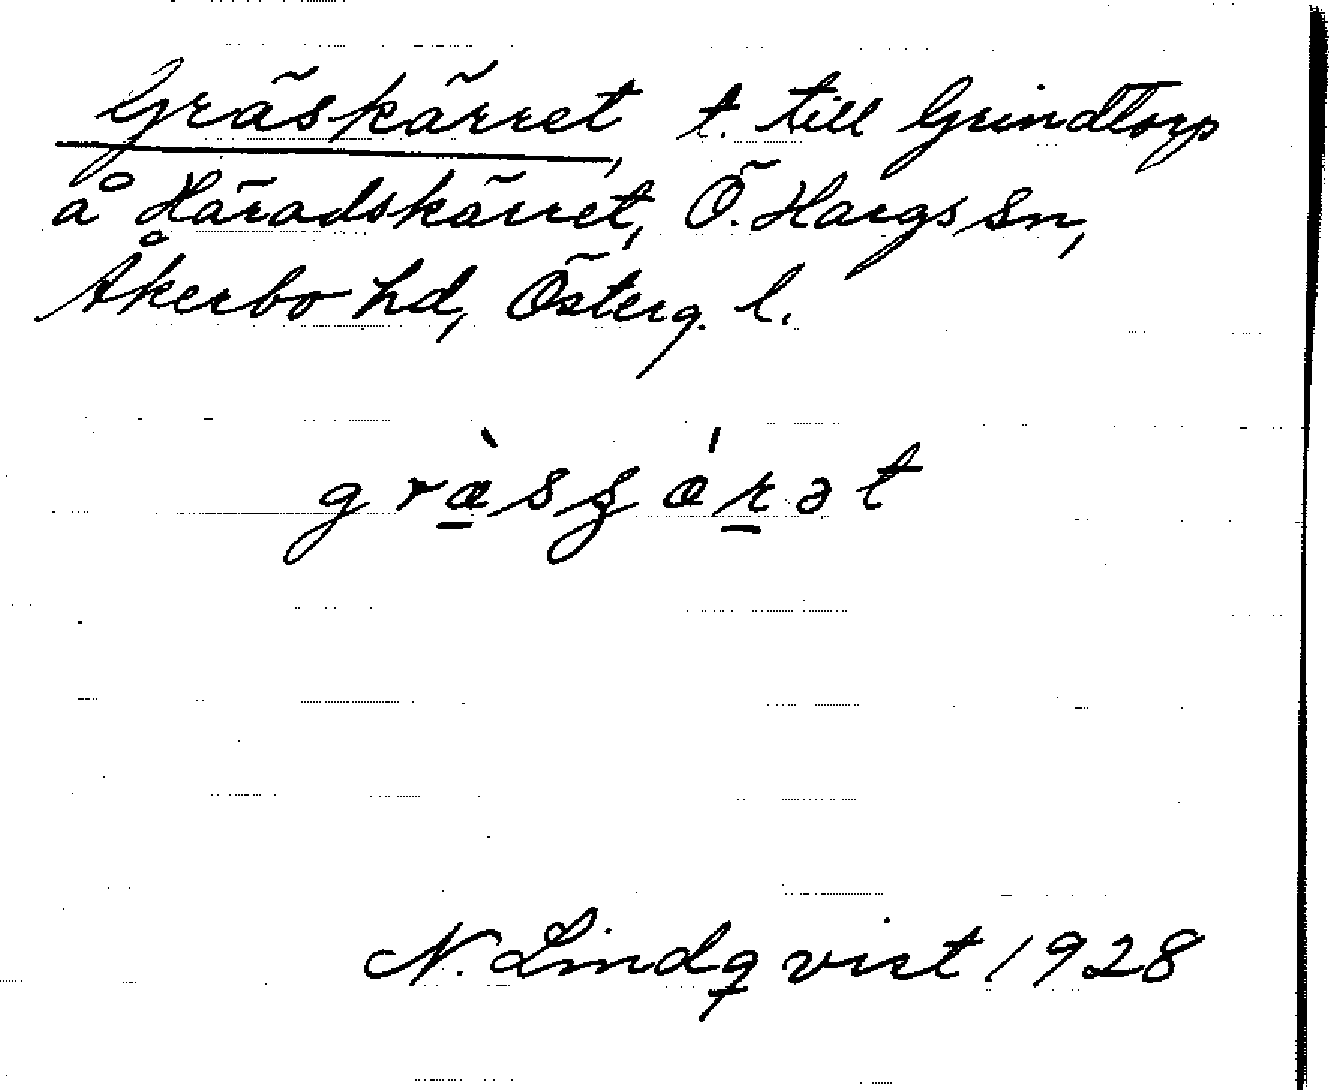 Gräskärret, t. till Grindtorp
å Häradskärret, Ö. Hargs sn,
Åkerbo hd, Österg. l.
N. Lindqvist 1928